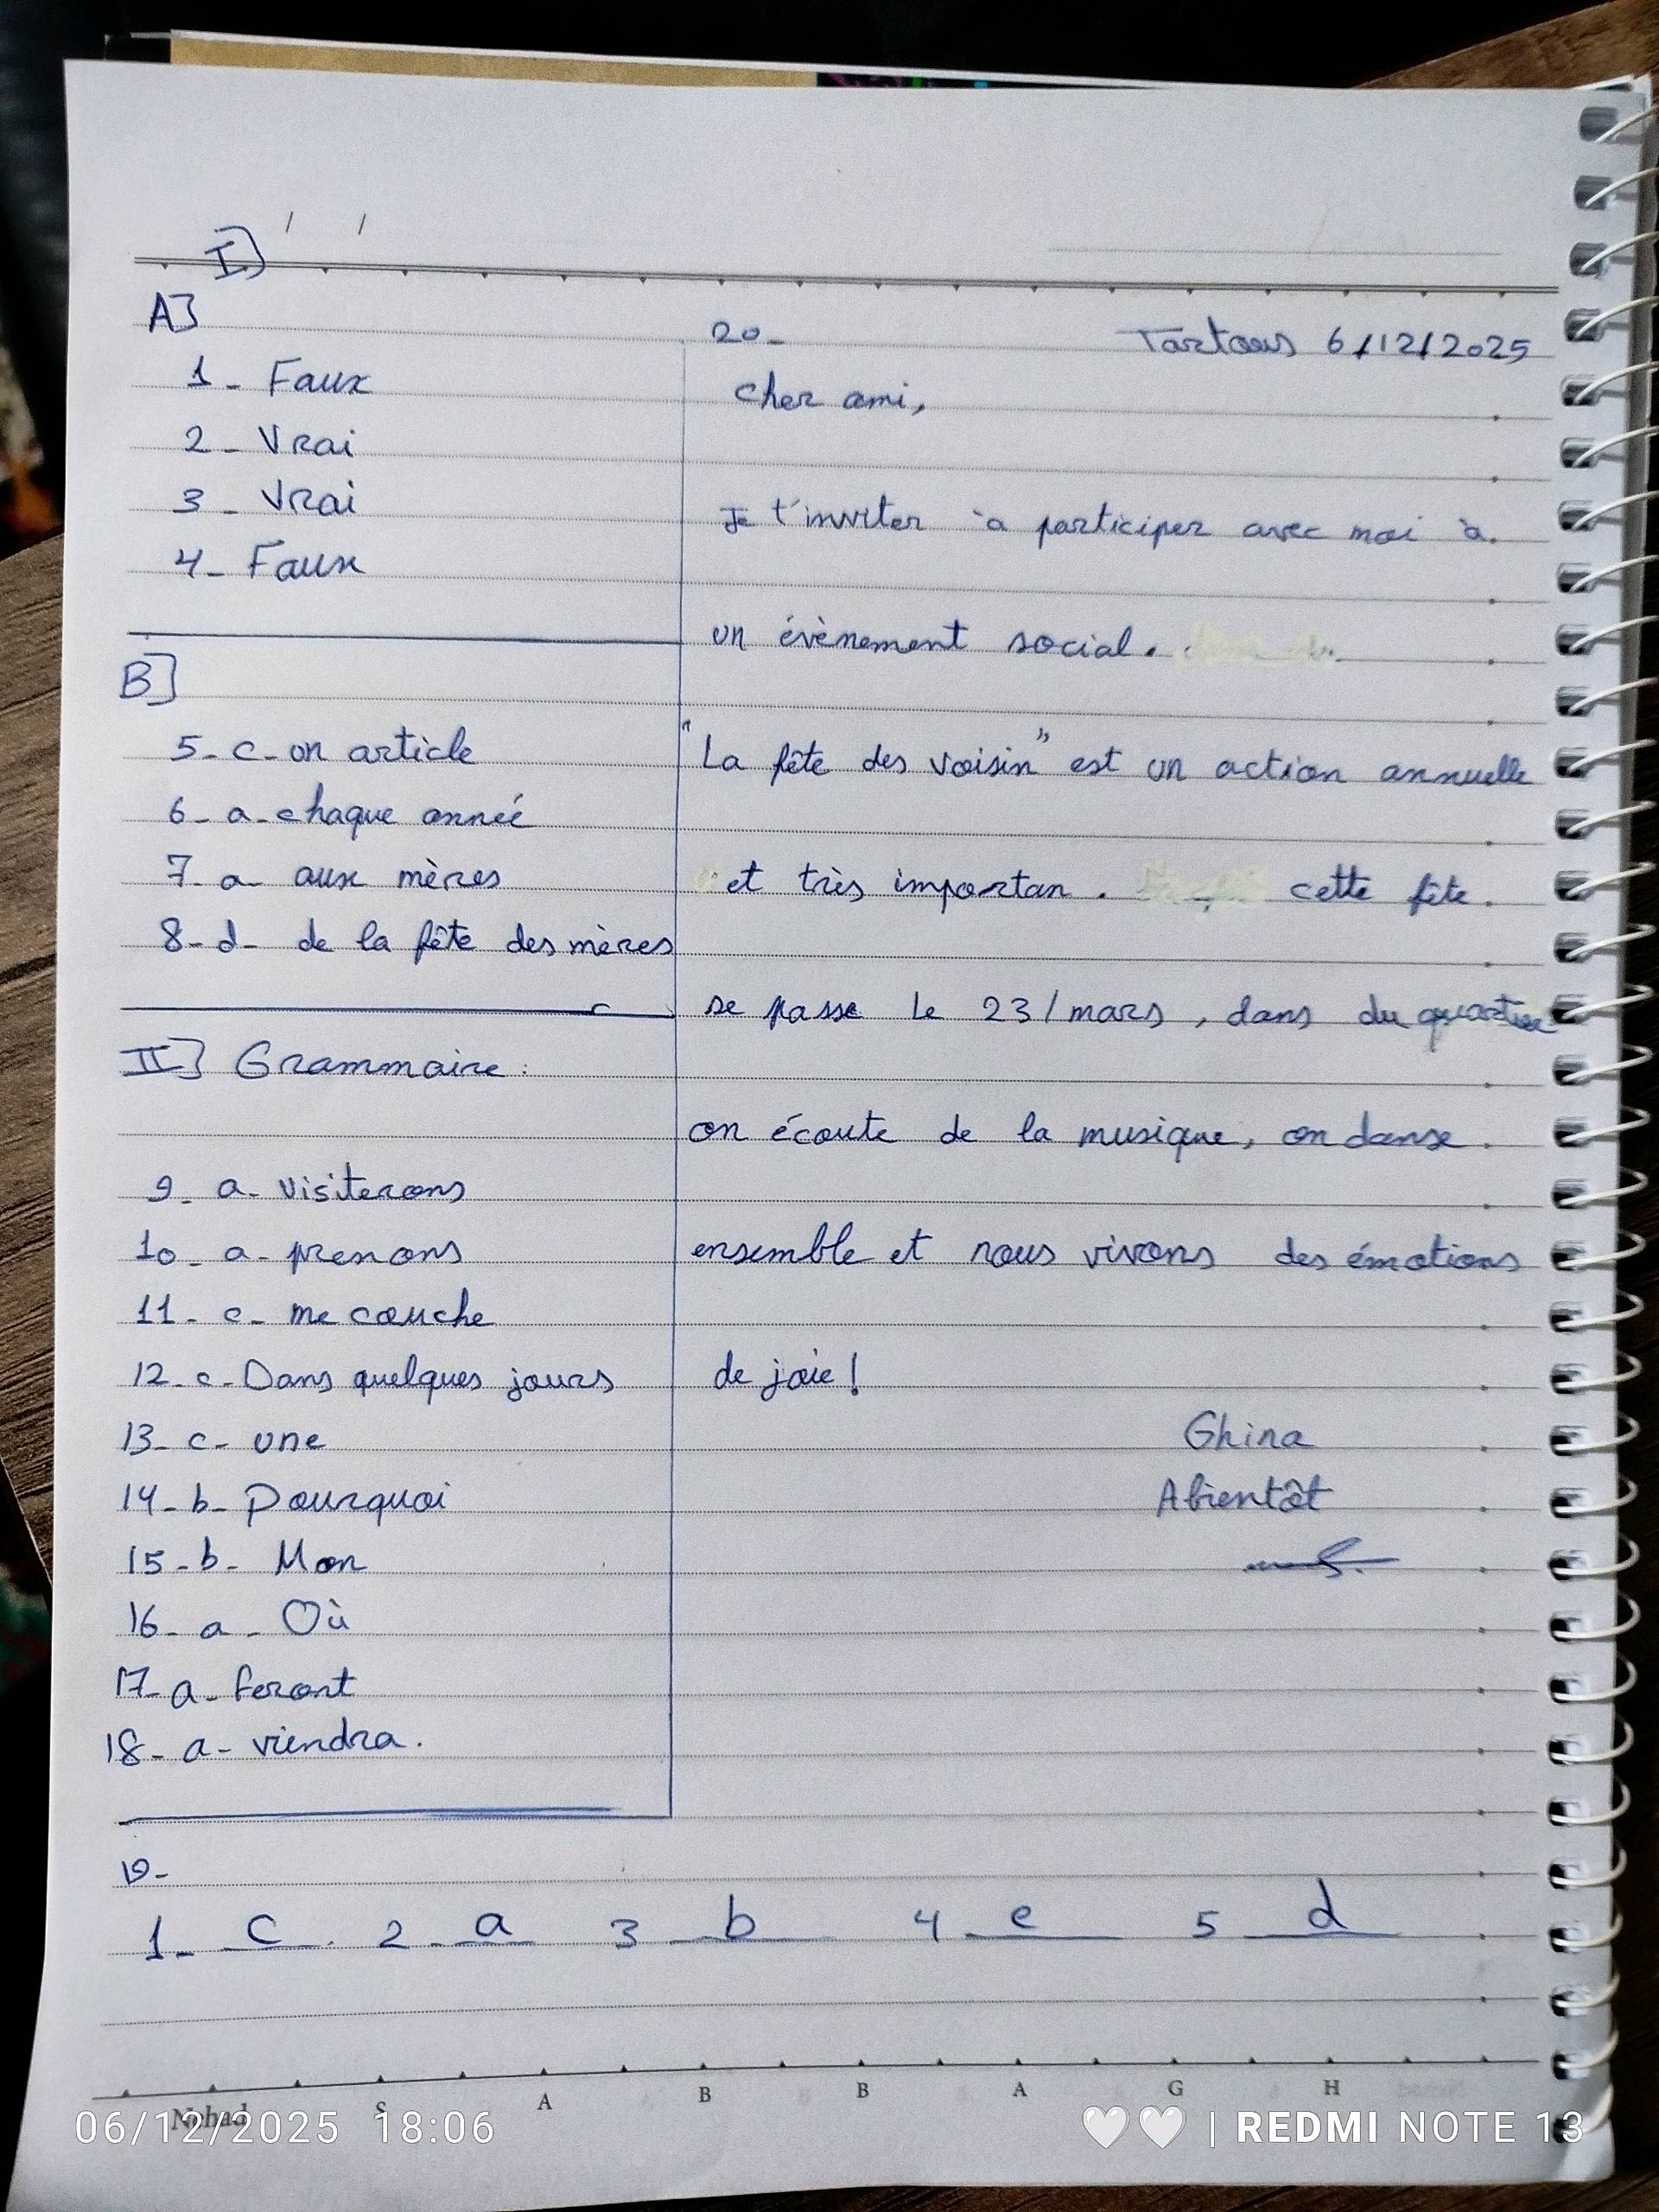 I]
A]
1- Faux
2- Vrai
3- Vrai
4- Faux
B]
5- c- un article
6- a- chaque anneé
7- a- aux mères
8- d- de la fête des mères
II] Grammaire:
9- a- visiterons
10- a- prenons
11- c- me couche
12- c- Dans quelques jours
13- c- une
14- b- Pourquoi
15- b- Mon
16- a- Où
17- a- feront
18- a- viendra.
20-
Tartous 6/12/2025
cher ami,
Je t'inviter à participer avec moi à
un évènement social.
"La fête des voisin" est un action annuelle
et très importan. cette fête
se passe le 23/mars, dans du quartier
on écoute de la musique, on danse
ensemble et nous vivons des émotions
de joie!
Ghina
Abientôt
19-
1- c 2- a 3- b 4- e 5- d
Nehad S A B B A G H
06/12/2025 18:06
| REDMI NOTE 13